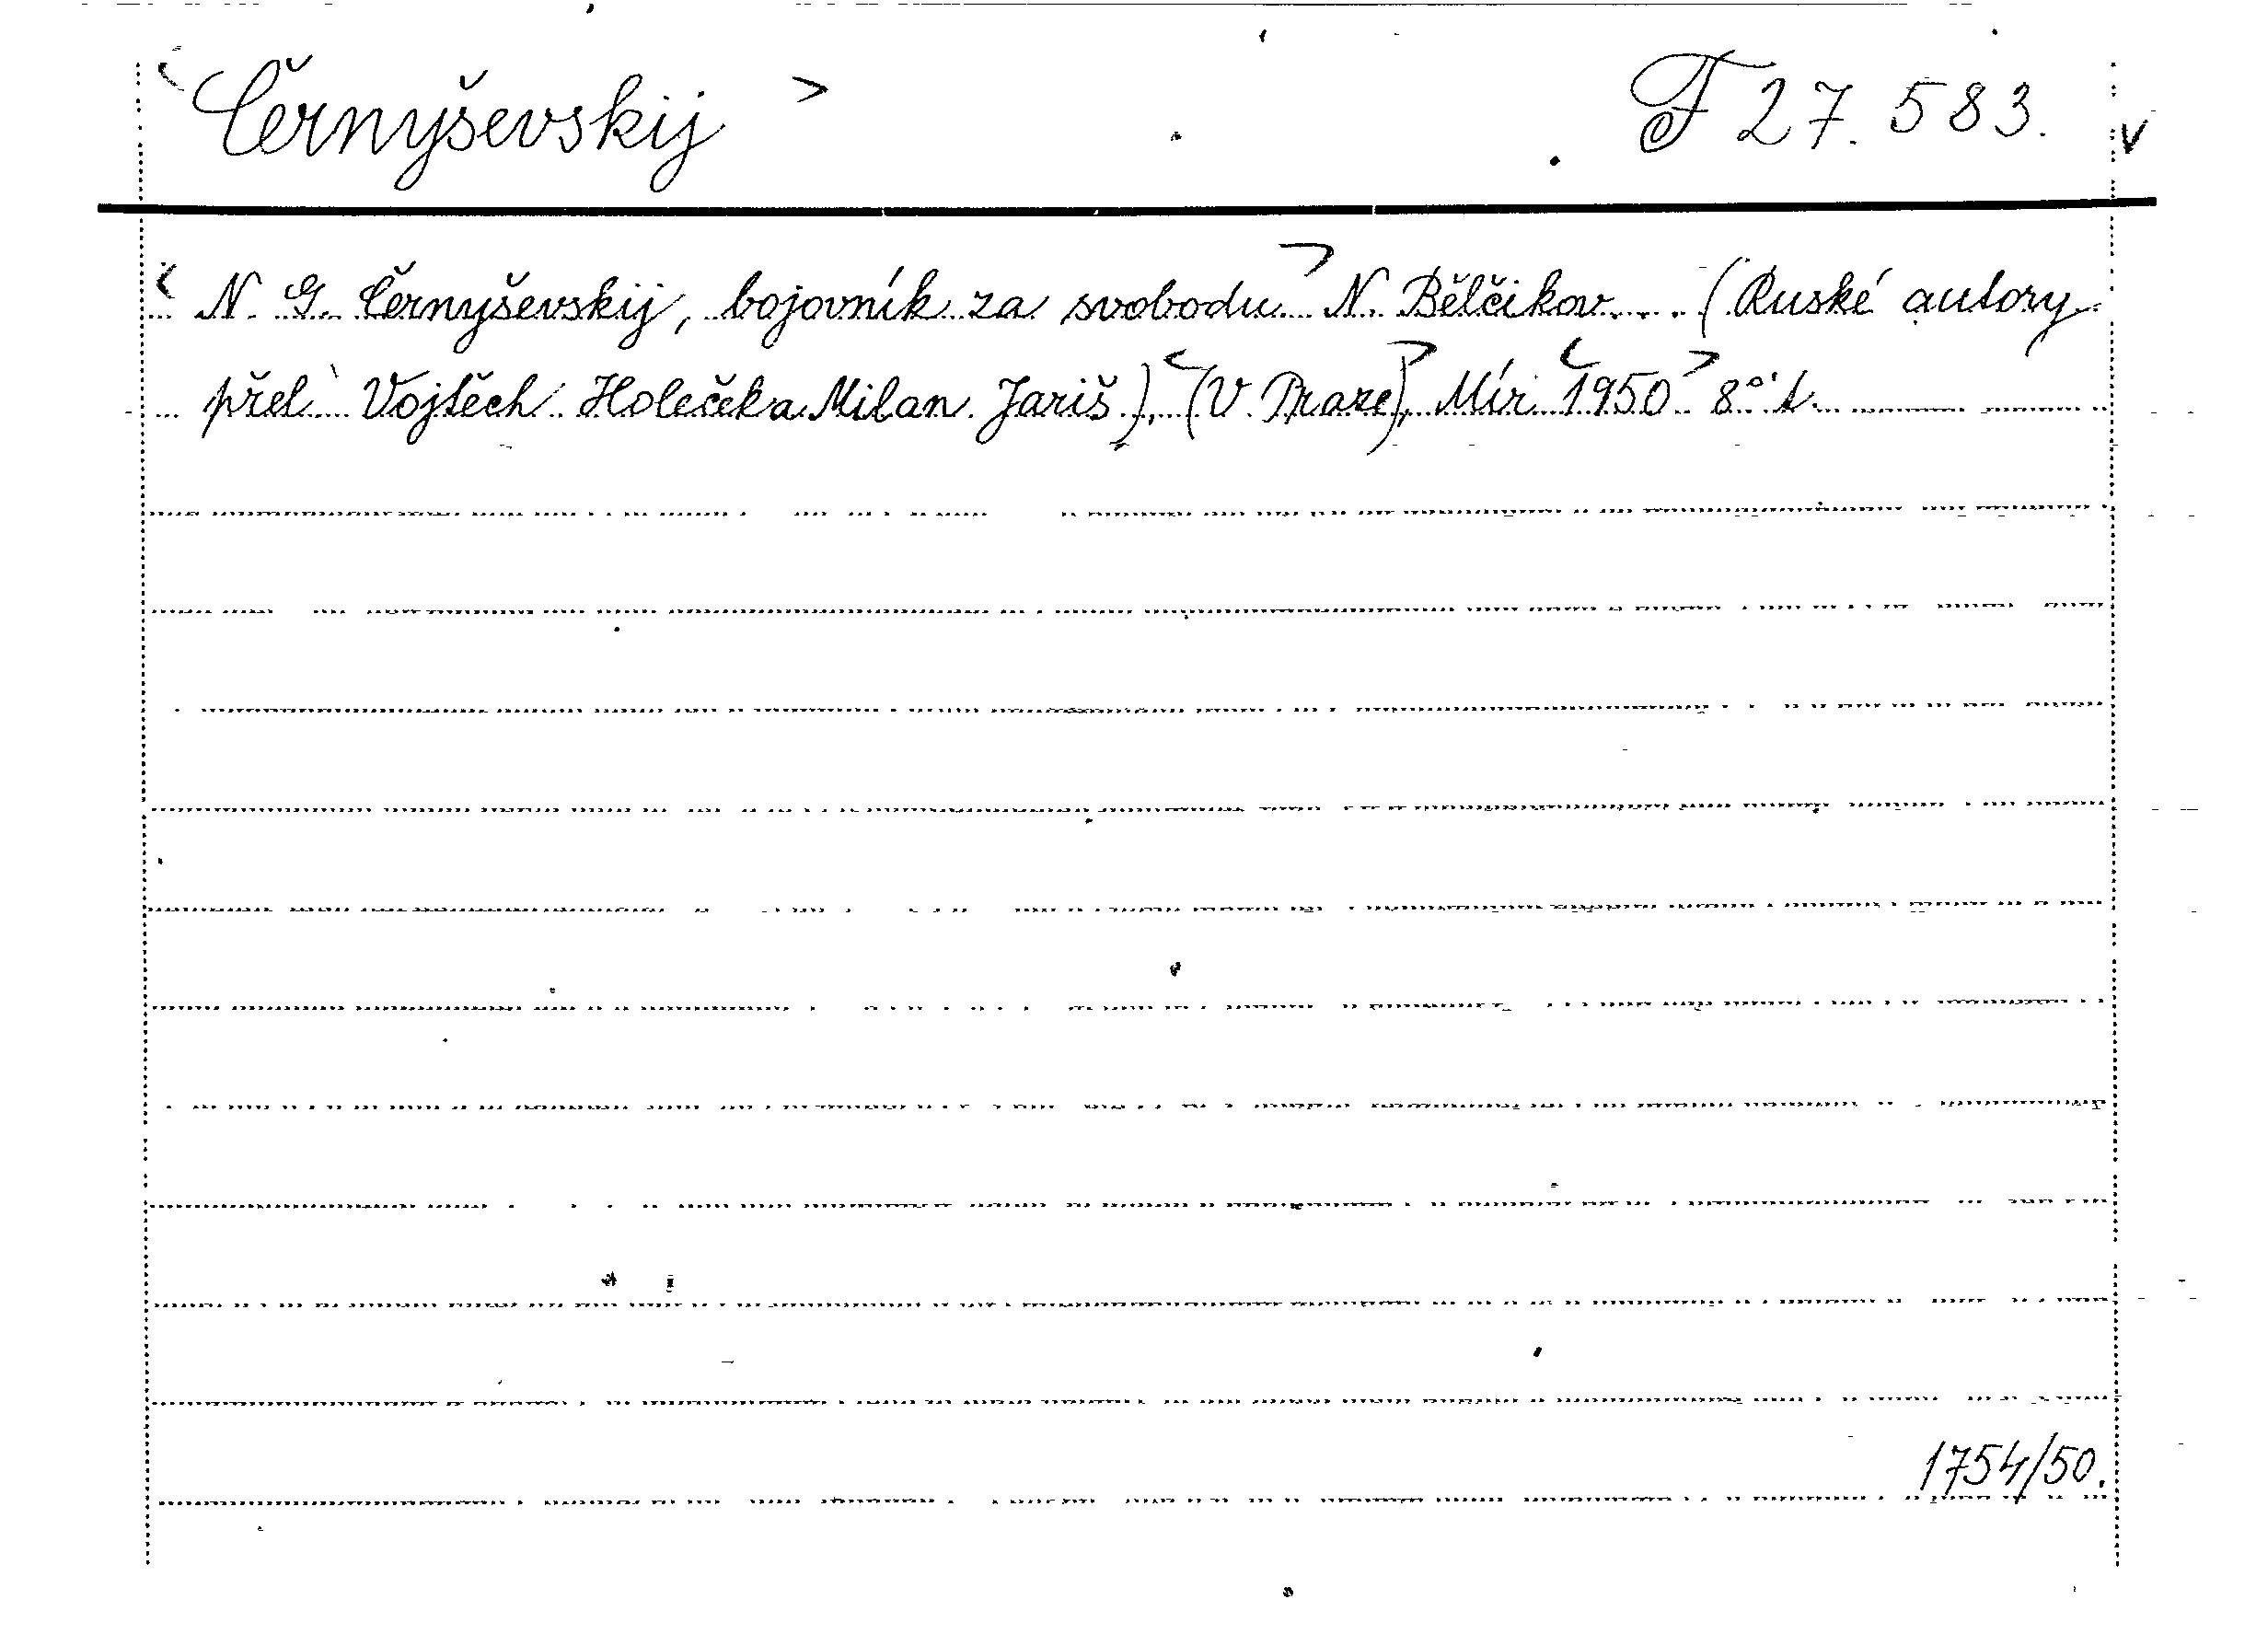 Černyševskij F 27.583.
N. G. Černyševskij, bojovník za svobodu N. Bělčikov... (Ruské autory
přel. Vojtěch Holeček a Milan Jariš), (V Praze), Mír 1950 8°
1754/50.